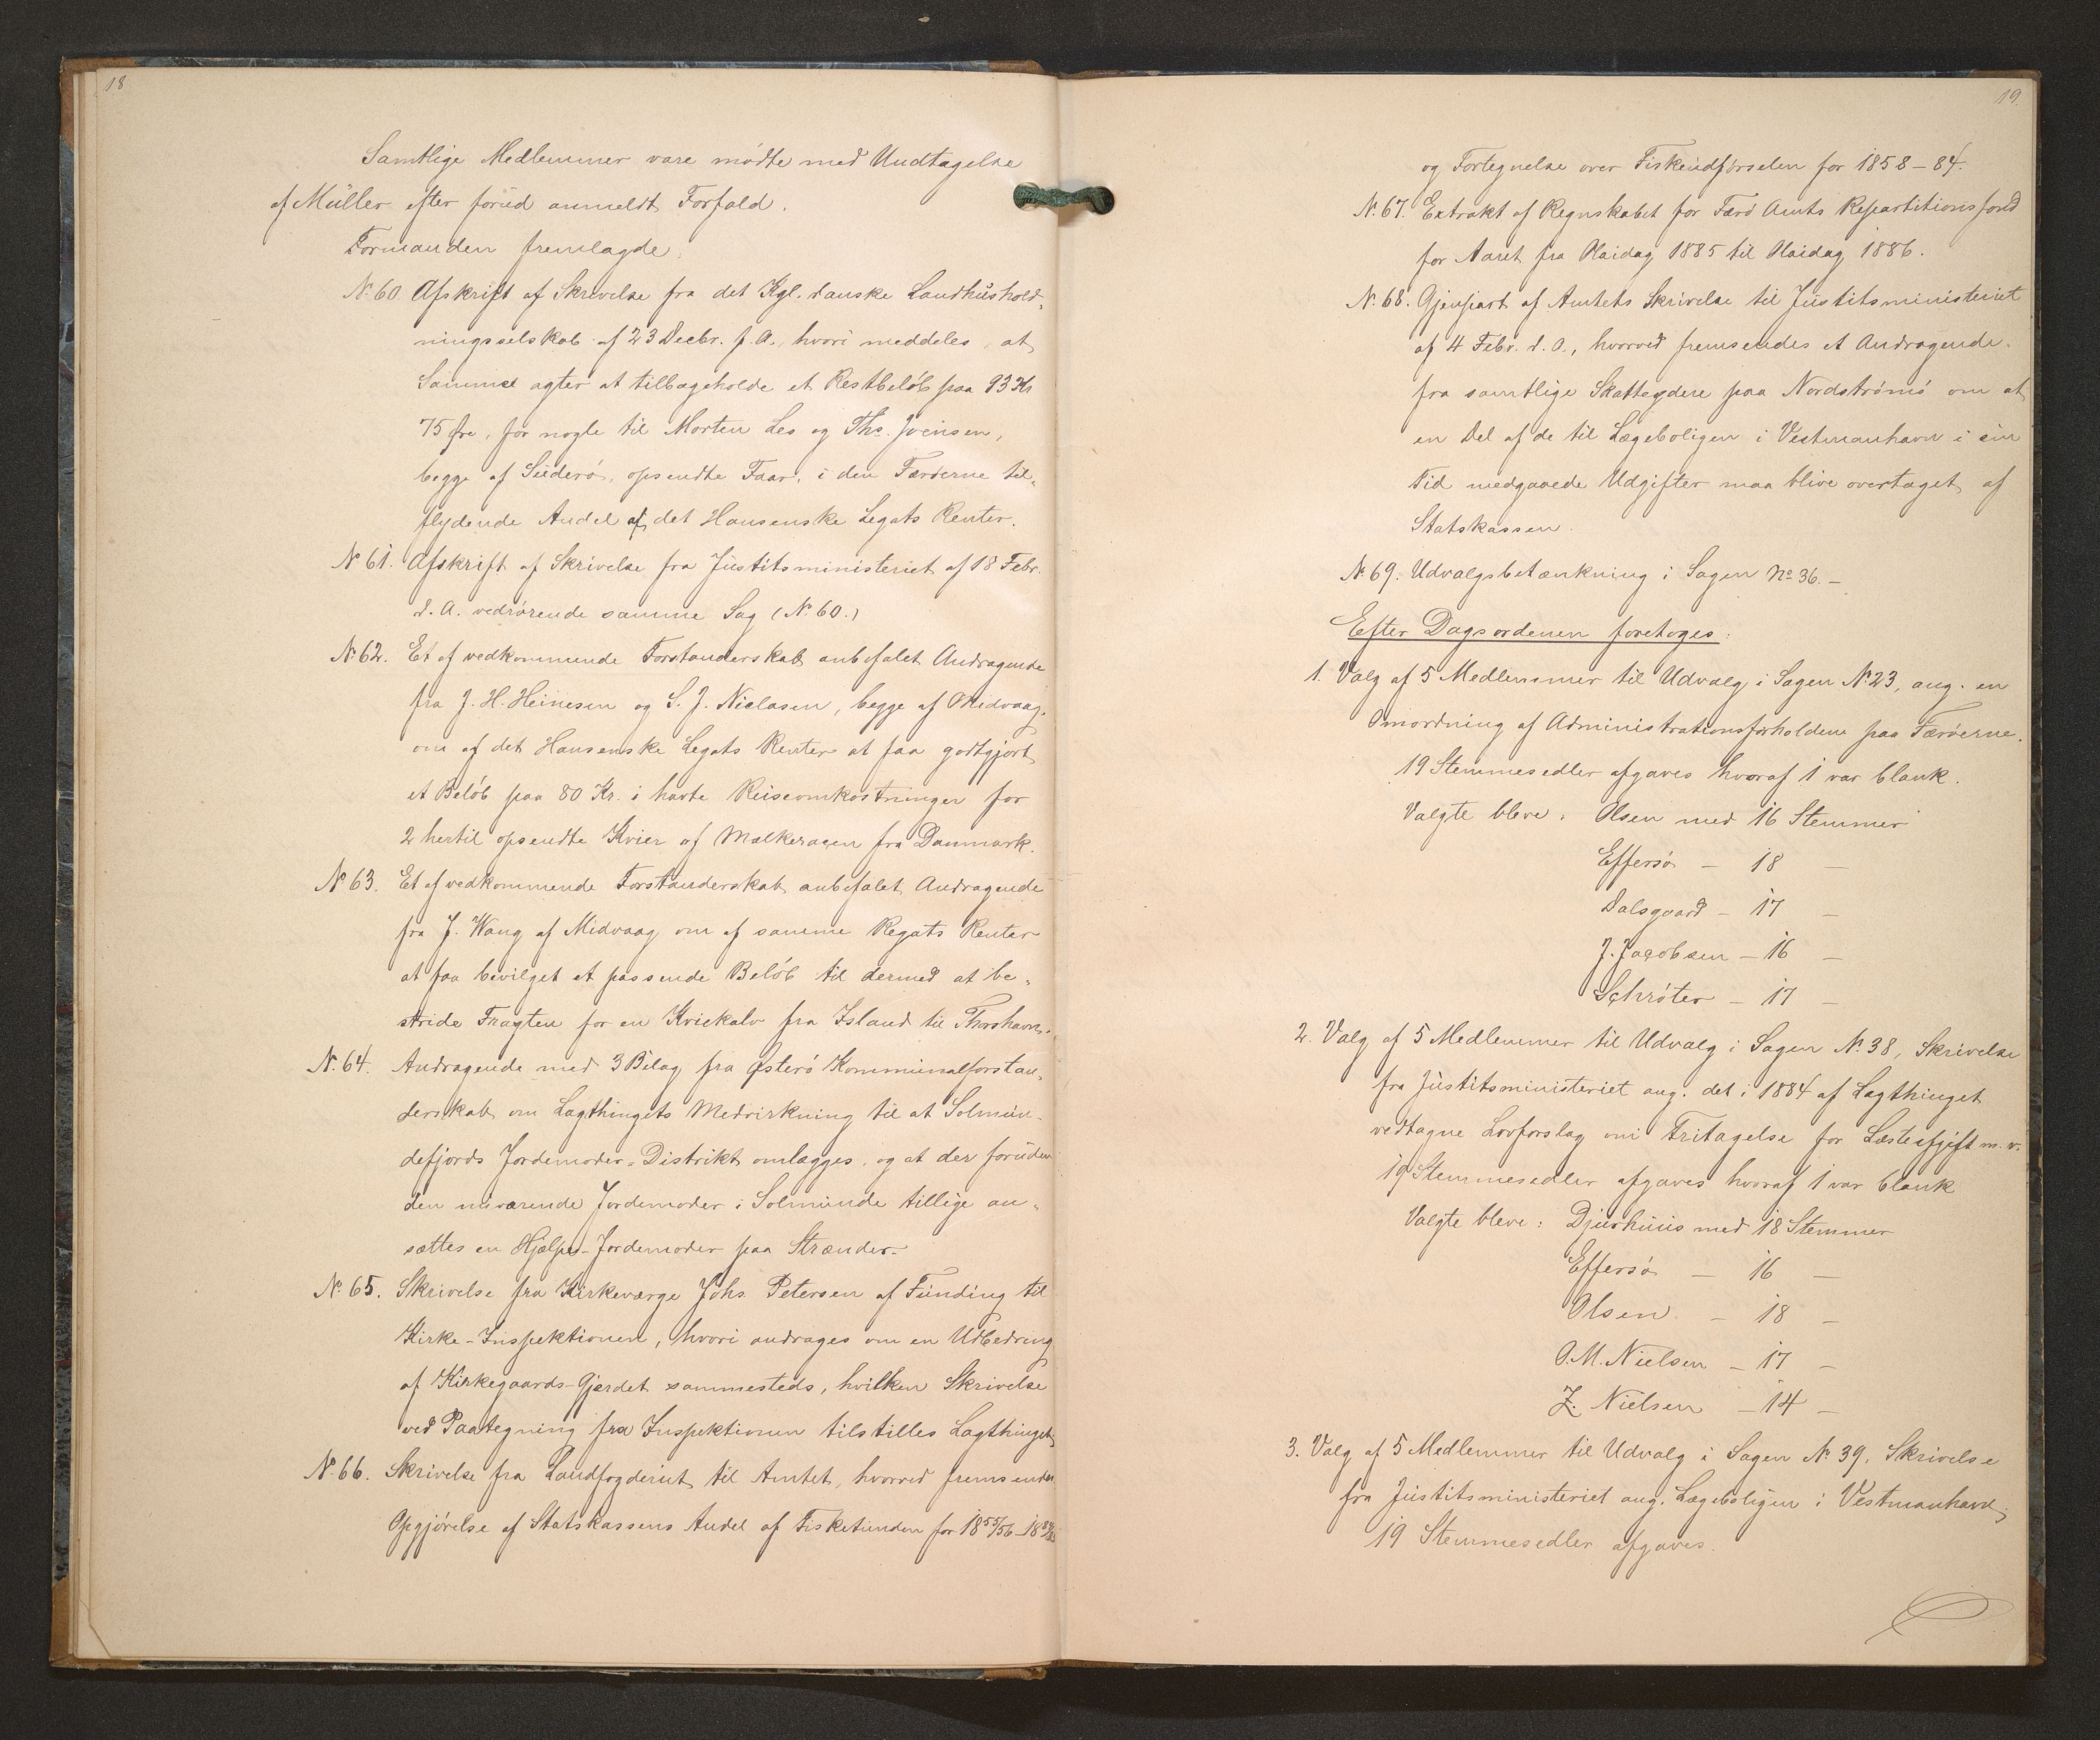 18
Samtlige Medlemmer vare mødte med Undtagelse
af Müller efter forud anmeldt Forfald.
Formanden fremlagde:
No. 60. Afskrift af Skrivelse fra det Kgl. danske Landhushold-
ningsselskab af 23 Decbr. f. A., hvori meddeles, at
Samme agter at tilbageholde et Restbeløb paa 93 Kr
75 Øre, for nogle til Morten Les og Ths. Joensen,
begge af Suderø, opsendte Faar, i den Færøerne til-
flydende Andel af det Hansenske Legats Renter.
No. 61. Afskrift af Skrivelse fra Justitsministeriet af 18 Febr.
d. A. vedrørende samme Sag (No. 60.)
No. 62. Et af vedkommende Forstanderskab anbefalet Andragende
fra J. H. Heinesen og S. J. Niclasen, begge af Midvaag,
om af det Hansenske Legats Renter at faa godtgjort
et Beløb paa 80 Kr. i havte Reiseomkostninger for
2 hertil opsendte Kvier af Malkeracen fra Danmark.
No. 63. Et af vedkommende Forstanderskab anbefalet Andragende
fra J. Wang af Midvaag om af samme Legats Renter
at faa bevilget et passende Beløb til dermed at be-
stride Fragten for en Kviekalv fra Island til Thorshavn.
No. 64. Andragende med 3 Bilag fra Østerø Kommunalforstan-
derskab om Lagthingets Medvirkning til at Solmun-
defjords Jordemoder-Distrikt omlægges, og at der foruden
den nuværende Jordemoder i Solmunde tillige an-
sættes en Hjælpe-Jordemoder paa Strænder.
No. 65. Skrivelse fra Kirkeværge Johs. Petersen af Funding til
Kirke-Inspektionen, hvori andrages om en Udbedring
af Kirkegaards-Gjærdet sammesteds, hvilken Skrivelse
ved Paategning fra Inspektionen tilstilles Lagthinget
No. 66. Skrivelse fra Landfogderiet til Amtet, hvorved fremsendes
Opgjørelse af Statskassens Andel af Fisketienden for 1855/56 - 1884/85
19.
og Fortegnelse over Fiskeudførselen for 1858-84.
No. 67. Extrakt af Regnskabet for Færø Amts Repartitionsfond
for Aaret fra Olaidag 1885 til Olaidag 1886.
No. 68. Gjenpart af Amtets Skrivelse til Justitsministeriet
af 4 Febr. d. A., hvorved fremsendes et Andragende
fra samtlige Skatteydere paa Nordstrømø om at
en Del af de til Lægeboligen i Vestmanhavn i sin
Tid medgaaede Udgifter maa blive overtaget af
Statskassen.
No. 69. Udvalgsbetænkning i Sagen No. 36. -
Efter Dagsordenen foretoges:
1. Valg af 5 Medlemmer til Udvalg i Sagen No. 23, ang. en
Omordning af Administrationsforholdene paa Færøerne.
19 Stemmesedler afgaves hvoraf 1 var blank.
Valgte bleve: Olsen med 16 Stemmer
Effersø - 18 -
Dalsgaard - 17 -
J. Jacobsen - 16 -
Schrøter - 17 -
2. Valg af 5 Medlemmer til Udvalg i Sagen No. 38, Skrivelse
fra Justitsministeriet ang. det i 1884 af Lagthinget
vedtagne Lovforslag om Fritagelse for Læsteafgift m. v.
19 Stemmesedler afgaves hvoraf 1 var blank
Valgte bleve: Djurhuus med 18 Stemmer
Effersø - 16 -
Olsen - 18 -
O. M. Nielsen - 17 -
Z. Nielsen - 14 -
3. Valg af 5 Medlemmer til Udvalg i Sagen No. 39. Skrivelse
fra Justitsministeriet ang. Lægeboligen i Vestmanhavn;
19 Stemmesedler afgaves.